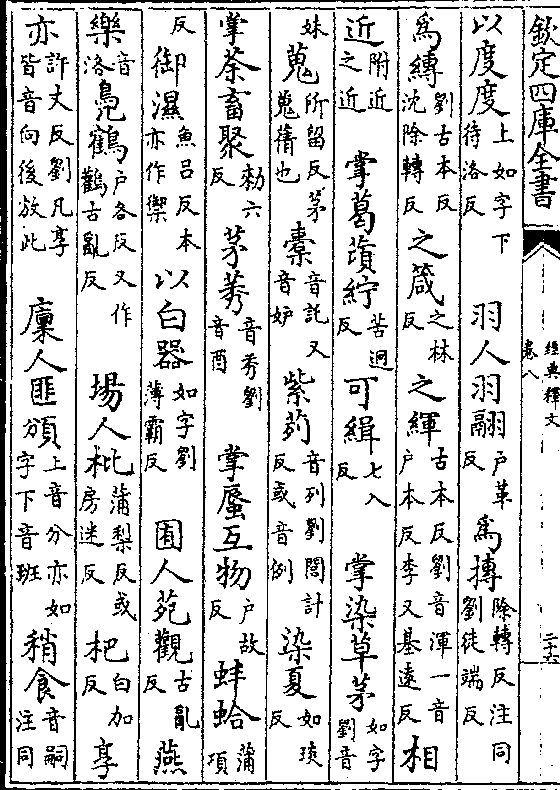 欽定四庫全書
經典釋文
卷八
以度度上如字下待洛反 羽人羽翮户革反 為搏除轉反注同劉徒端反
為縛劉古本反沈除轉反 之箴之林反 之緷古本反劉音渾一音户本反李又基遠反 相
近附近之近 掌葛䔛紵苦迥反 可緝七入反 掌染草茅如字劉音
妹 蒐所留反茅蒐蒨也 橐音託又音妒 紫茢音列劉閭計反或音例 染夏如琰反
掌荼畜聚勑六反 茅莠音秀劉音酉 掌蜃互物户故反 蚌蛤蒲項
反 御濕魚呂反本亦作禦 以白器如字劉薄霸反 囿人苑觀古亂反 燕
樂音洛 鳧鶴户各反又作鸛古亂反 場人枇蒲梨反或房迷反 杷白加反 享
亦許丈反劉凡享皆音向後放此 廩人匪頒上音分亦如字下音班 稍食音嗣注同